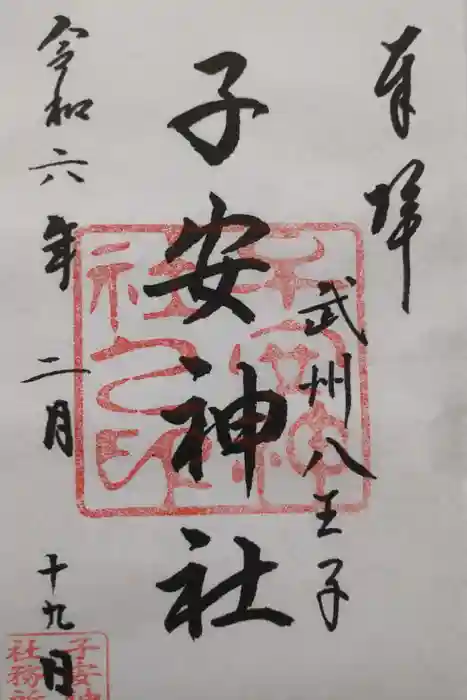 奉拝
武州八王子
子安神社
令和六年 二月 十九日
子安神
社務所